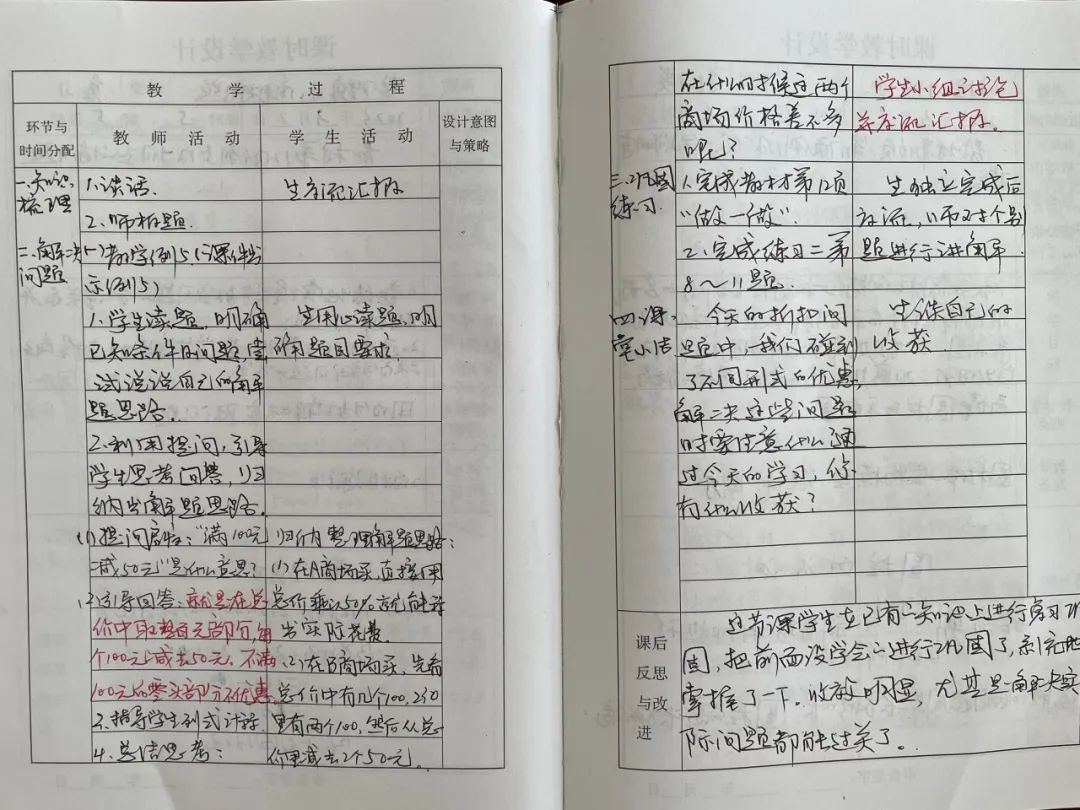 教 学 过 程
环节与
时间分配
教 师 活 动
学 生 活 动
设计意图
与策略
一.知识
梳理
1.谈话.
生交流汇报
2.师板题.
二.解决
问题
(一)教学例5.(课件出
示例5)
1.学生读题,明确
已知条件的问题,尝
试说说自己的解
题思路.
生用心读题,明
确题目要求.
2.利用提问,引导
学生思考回答,归
纳出解题思路.
(1)提问启发:“满100元
减50元”是什么意思?
(2)引导回答:就是在总
价中取整百元部分,每
个100元减去50元.不满
100元的零头部分不优惠.
3.指导学生列式计算.
4.总结思考:
归纳整理解题思路:
(1)在A商场买,直接用
总价乘以50%就能算
出实际花费.
(2)在B商场买,先看
总价中有几个100,230
里有两个100,然后从总
价里减去2个50元.
在什么时候这两个
商场价格差不多
呢?
学生小组讨论
并交流汇报.
三.巩固
练习.
1.完成教材第12页
“做一做”.
2.完成练习二第
8~11题.
生独立完成后
交流,师对个别
题进行讲解.
四.课
堂小结
今天的折扣问
题中,我们碰到
了不同形式的优惠,
解决这些问题
时要注意什么 通
过今天的学习,你
有什么收获?
生谈自己的
收获.
课后
反思
与改
进
这节课学生在已有的知识上进行复习巩
固,把前面没学会的进行巩固了,系统地
掌握了一下.收效明显,尤其是解决实
际问题都能过关了.